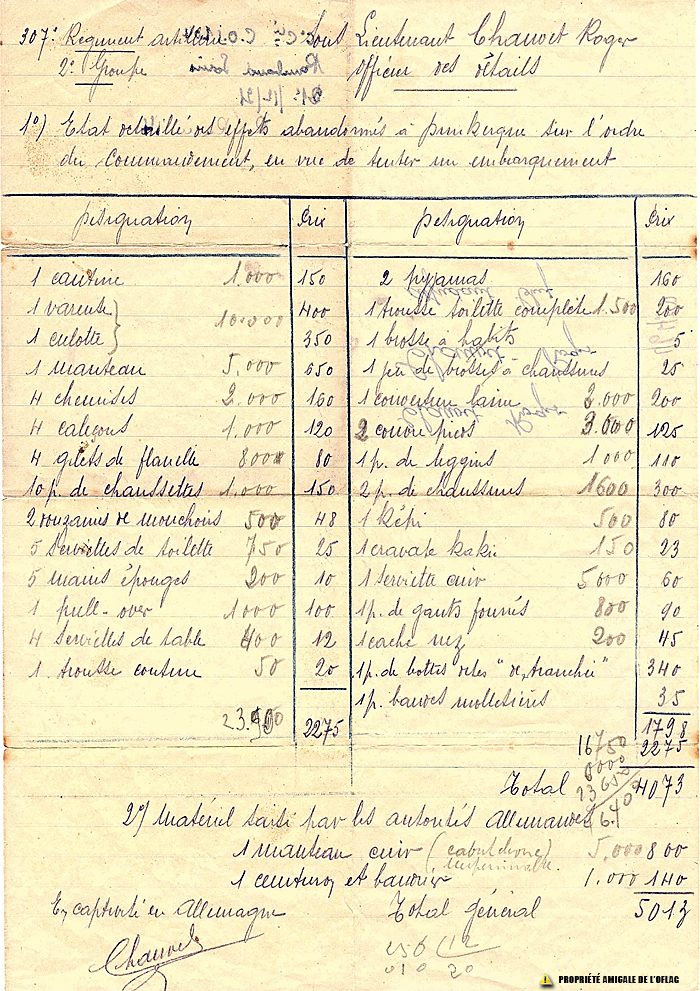 307e Régiment artillerie Sous Lieutenant Chauvet Roger
2e Groupe Officier des détails
1°) Etat détaillé des effets abandonnés à Dunkerque sur l'ordre
du Commandement, en vue de tenter un embarquement
Désignation Prix Désignation Prix
1 cantine 1.000 150 2 pyjamas 160
1 vareuse 400 1 trousse toilette complète 1.500 200
10.000
1 culotte 350 1 brosse à habits 5
1 manteau 5.000 650 1 jeu de brosses à chaussures 25
4 chemises 2.000 160 1 couverture laine 2.000 200
4 caleçons 1.000 120 2 couvre pieds 3.000 125
4 gilets de flanelle 800 80 1 p. de leggins 1000 110
10 p. de chaussettes 1.000 150 2 p. de chaussures 1600 300
2 douzaines de mouchoirs 500 48 1 Képi 500 80
5 Serviettes de toilette 750 25 1 cravate kakie 150 23
5 mains éponges 200 10 1 Serviette cuir 5000 60
1 pull-over 1000 100 1 p. de gants fourrés 800 90
4 Serviettes de table 400 12 1 cache nez 200 45
1 trousse couture 50 20 1 p. de bottes dites "de tranchée" 340
1 p. bandes molletières 35
2275 1798
16750 2275
6000
23650
Total 4073
2°) Matériel saisi par les autorités Allemandes
1 manteau cuir ( 5.000 800
1 ceinturon et baudrier 1.000 140
En captivité en Allemagne Total général 5013
Chauvet
PROPRIÉTÉ AMICALE DE L'OFLAG